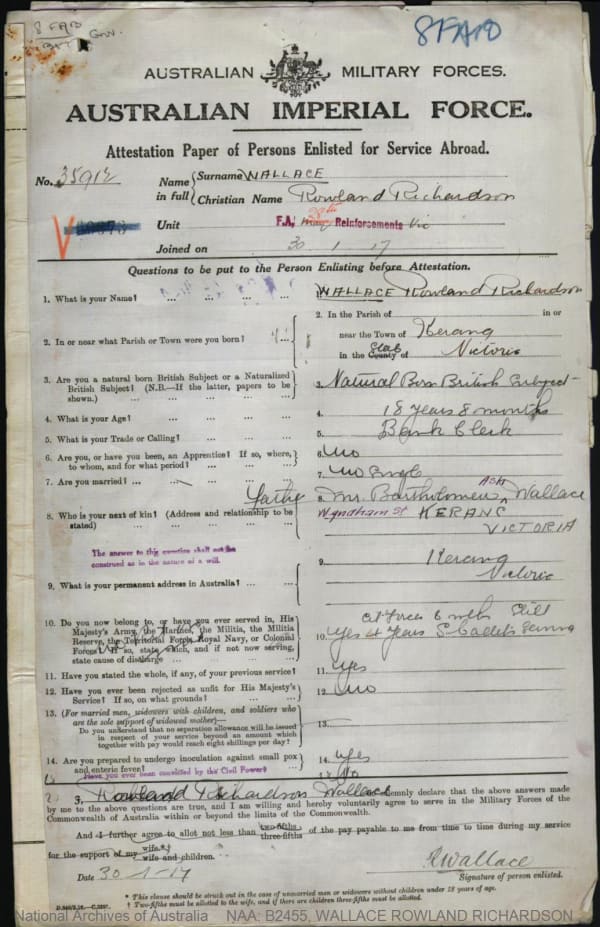 8 FAB
Gnr.
8FAB
AUSTRALIAN MILITARY FORCES.
AUSTRALIAN IMPERIAL FORCE.
Attestation Paper of Persons Enlisted for Service Abroad.
No. 35912
Name in full { Surname WALLACE
Christian Name Rowland Richardson
Unit F.A. 28th Reinforcements Vic
Joined on 30 1 17
Questions to be put to the Person Enlisting before Attestation.
1. What is your Name? ... ... ... ... 1. WALLACE Rowland Richardson
2. In or near what Parish or Town were you born? 2. In the Parish of in or
near the Town of Kerang
in the County of State Victoria
3. Are you a natural born British Subject or a Naturalized
British Subject? (N.B.—If the latter, papers to be
shown.) ... ... ... ... 3. Natural Born British Subject
4. What is your Age? ... ... ... ... 4. 18 years 8 months
5. What is your Trade or Calling? ... ... ... 5. Bank Clerk
6. Are you, or have you been, an Apprentice? If so, where,
to whom, and for what period? ... ... ... 6. No
7. Are you married? ... ... ... ... 7. No Single
8. Who is your next of kin? (Address and relationship to be
stated) ... ... ... Father 8. Mr. Bartholomew Ash Wallace
Wyndham St KERANG
VICTORIA
The answer to this question shall not be
construed as in the nature of a will.
9. What is your permanent address in Australia? ... ... 9. Kerang
Victoria
10. Do you now belong to, or have you ever served in, His
Majesty's Army, the Marines, the Militia, the Militia
Reserve, the Territorial Force, Royal Navy, or Colonial
Forces? If so, state which, and if not now serving,
state cause of discharge ... ... ... Cit Forces 6 mths Still
10. Yes 4 Years S. Cadets Serving
11. Have you stated the whole, if any, of your previous service? 11. Yes
12. Have you ever been rejected as unfit for His Majesty's
Service? If so, on what grounds? ... ... 12. No
13. (For married men, widowers with children, and soldiers who
are the sole support of widowed mother)—
Do you understand that no separation allowance will be issued
in respect of your service beyond an amount which
together with pay would reach eight shillings per day? 13.
14. Are you prepared to undergo inoculation against small pox
and enteric fever? 14. Yes
Have you ever been convicted by the Civil Power? No
I, Rowland Richardson Wallace solemnly declare that the above answers made
by me to the above questions are true, and I am willing and hereby voluntarily agree to serve in the Military Forces of the
Commonwealth of Australia within or beyond the limits of the Commonwealth.
And I further agree to allot not less than two-fifths three-fifths of the pay payable to me from time to time during my service
for the support of my wife.*† wife and children.
R Wallace
Date 30-1-17 Signature of person enlisted.
* This clause should be struck out in the case of unmarried men or widowers without children under 18 years of age.
† Two-fifths must be allotted to the wife, and if there are children three-fifths must be allotted.
National Archives of Australia NAA: B2455, WALLACE ROWLAND RICHARDSON